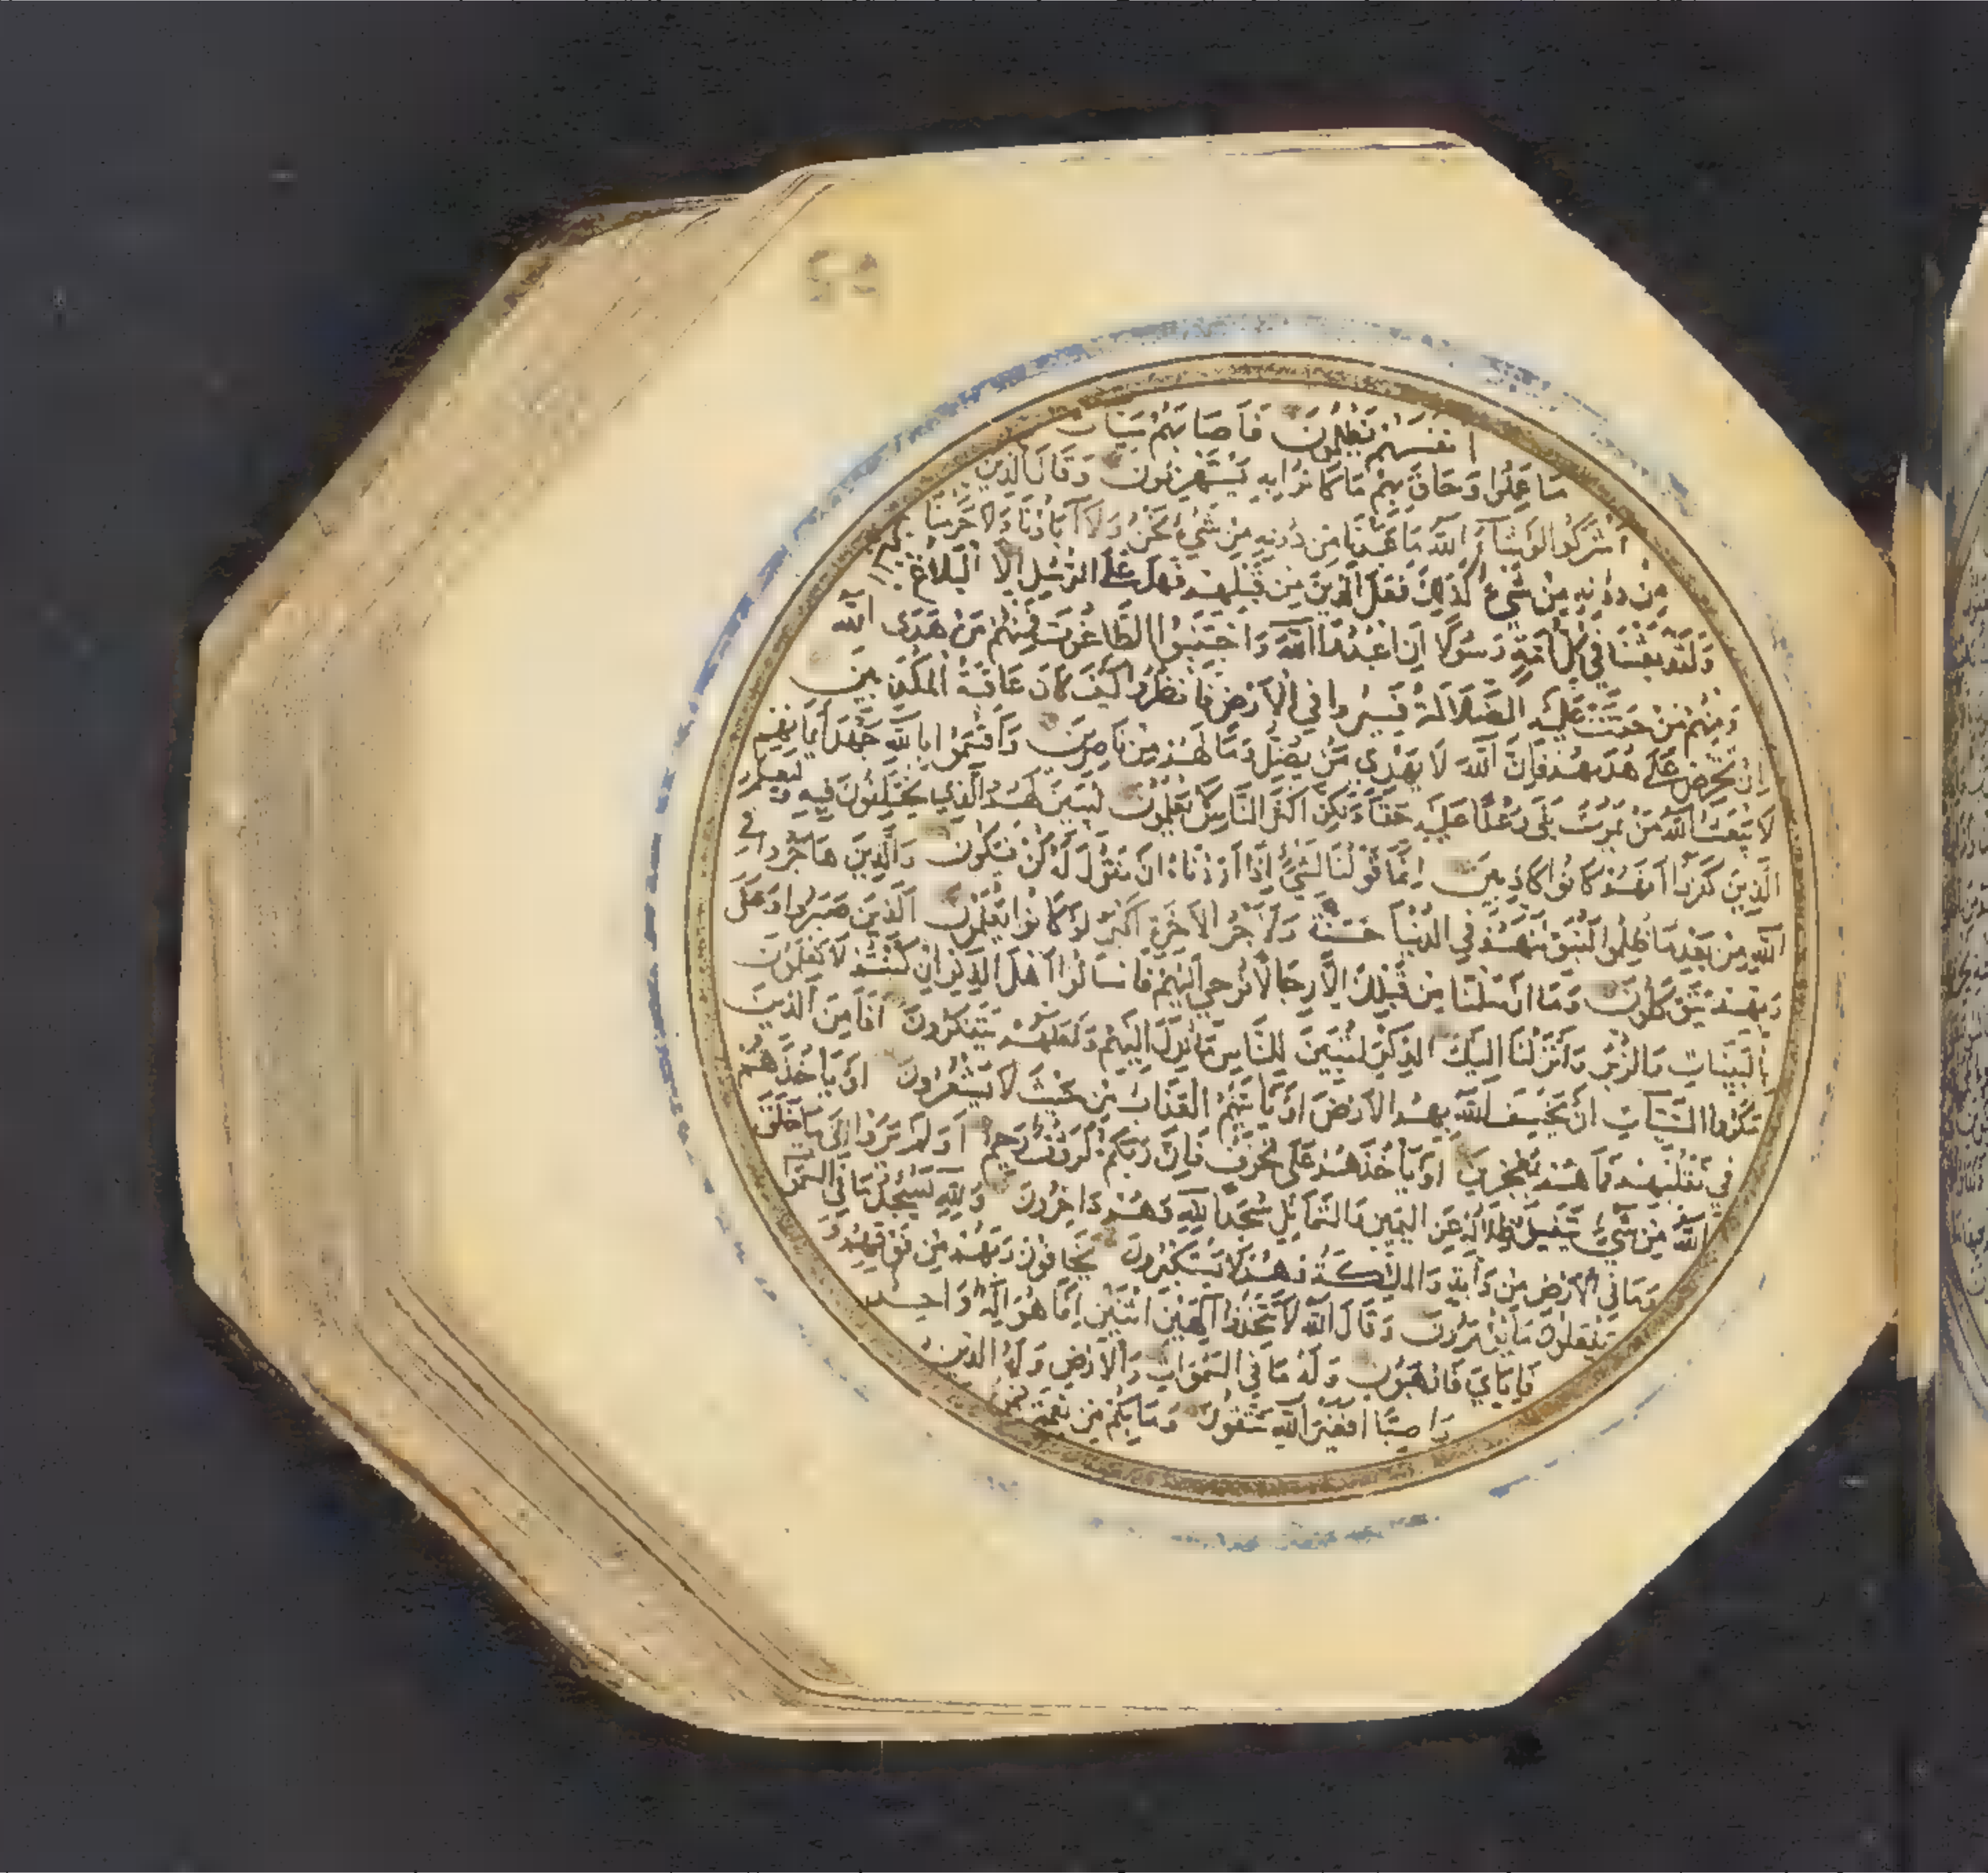 انفسهم يظلمون فاصابهم سيات
ما عملوا وحاق بهم ما كانوا به يستهزئون وقال الذين
اشركوا لو شاء الله ما عبدنا من دونه من شيء نحن ولا آباؤنا ولا حرمنا
من دونه من شيء كذلك فعل الذين من قبلهم فهل على الرسل الا البلاغ
ولقد بعثنا في كل امة رسولا ان اعبدوا الله واجتنبوا الطاغوت فمنهم من هدى الله
ومنهم من حقت عليه الضلالة فسيروا في الارض فانظروا كيف كان عاقبة المكذبين
ان تحرص على هديهم فان الله لا يهدي من يضل وما لهم من ناصرين واقسموا بالله جهد ايمانهم
لا يبعث الله من يموت بلى وعدا عليه حقا ولكن اكثر الناس يعلمون ليبين لهم الذي يختلفون فيه وليعلم
الذين كفروا انهم كانوا كاذبين انما قولنا لشيء اذا اردناه ان نقول له كن فيكون والذين هاجروا في
الله من بعد ما ظلموا لنبوئنهم في الدنيا حسنة ولاجر الاخرة اكبر لو كانوا يعلمون الذين صبروا وعلى
ربهم يتوكلون وما ارسلنا من قبلك الا رجالا نوحي اليهم فاسالوا اهل الذكر ان كنتم لا تعلمون
بالبينات والزبر وانزلنا اليك الذكر لتبين للناس ما نزل اليهم ولعلهم يتفكرون افامن الذين
مكروا السيات ان يخسف الله بهم الارض او ياتيهم العذاب من حيث لا يشعرون او ياخذهم
في تقلبهم فما هم بمعجزين او ياخذهم على تخوف فان ربكم لرؤف رحيم اولم يروا الى ما خلق
الله من شيء يتفيؤ ظلاله عن اليمين والشمائل سجدا لله وهم داخرون ولله يسجد ما في السموات
وما في الارض من دابة والملئكة وهم لا يستكبرون يخافون ربهم من فوقهم و
يفعلون ما يؤمرون وقال الله لا تتخذوا الهين اثنين انما هو اله واحد
فاياي فارهبون وله ما في السموات والارض وله الدين
واصبا افغير الله تتقون وما بكم من نعمة فمن